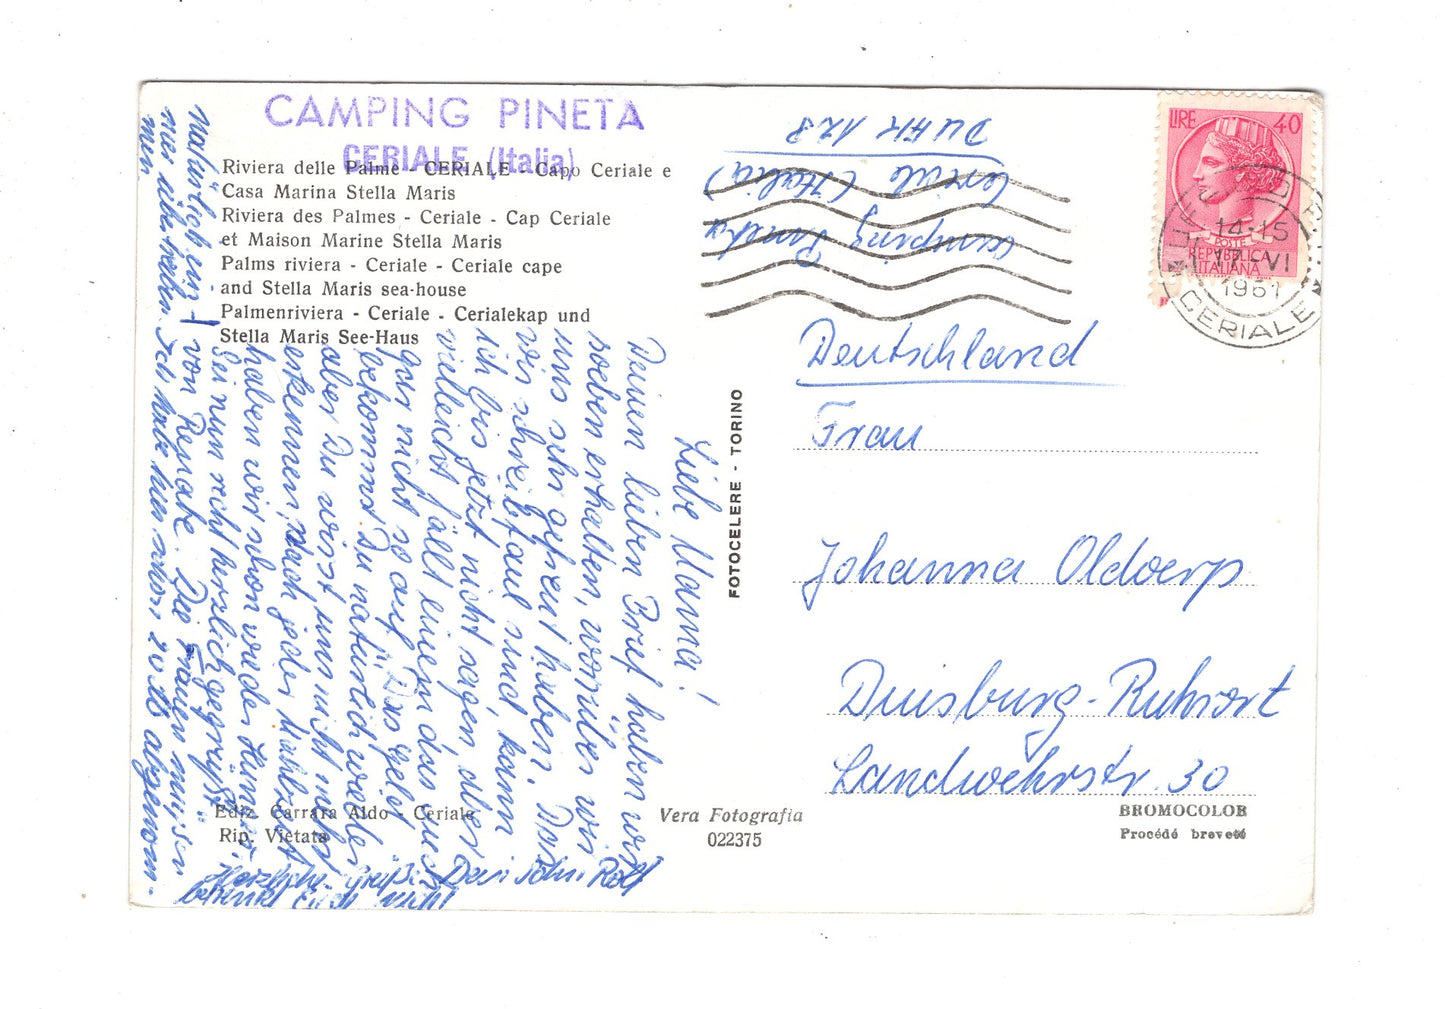 CAMPING PINETA
CERIALE (Italia)
Riviera delle Palme - CERIALE - Capo Ceriale e
Casa Marina Stella Maris
Riviera des Palmes - Ceriale - Cap Ceriale
et Maison Marine Stella Maris
Palms riviera - Ceriale - Ceriale cape
and Stella Maris sea-house
Palmenriviera - Ceriale - Cerialekap und
Stella Maris See-Haus
Liebe Mama!
Deinen lieben Brief haben wir
soeben erhalten, worüber wir
uns sehr gefreut haben. Das
wir schreibfaul sind, kann
ich bis jetzt nicht sagen, aber
vielleicht fällt einem das aus
gar nicht so auf. Das Geld
bekommst Du natürlich wieder
aber Du wirst uns nicht mehr
erkennen, nach jeder Mahlzeit
haben wir schon wieder Hunger.
Sei nun recht herzlich gegrüßt
von Renate. Die Frauen müssen
natürlich
mer Ich habe hier schon abgenom-
men
Dein Sohn Rolf
Herzliche Grüße
Camping Pineta
Ceriale (Italia)
Deutschland
Frau
Johanna Oldoerp
Duisburg-Ruhrort
Landwehrstr. 30
LIRE 40
POSTE
REPVBBLICA
ITALIANA
14-15
17-VI
1961
CERIALE
FOTOCELERE - TORINO
Ediz. Carrara Aldo - Ceriale
Rip. Vietata
Vera Fotografia
022375
BROMOCOLOR
Procédé breveté